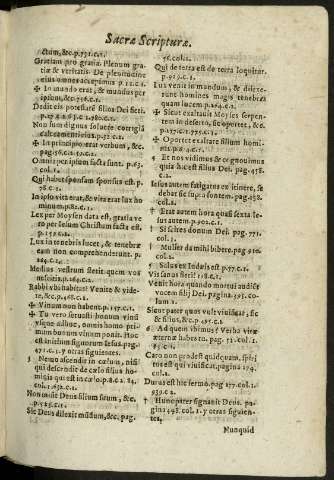 Sacræ Scripturæ.
ctum, &c. p.731.c.1.
Gratiam pro gratia. Plenum gra-
tiæ & veritatis. De plenitudine
eius omnes accepimus p.12.c.1.
✠ In mundo erat, & mundus per
ipsum, &c. 758.c.1.
Dedit eis potestatẽ filios Dei fieri.
Non sum dignus soluere corrigiã
calceamenti
✠ In principio erat verbum, &c.
Omnia per ipsum facta sunt.
col.1.
Qui habet sponsam sponsus est p.
78.c.2.
In ipso vita erat, & vita erat lux ho
minum.p.8.c.2.
Lex per Moysen data est, gratia ve
ro per Iesum Christum facta est.
Lux in tenebris lucet, & tenebræ
eam non comprehenderunt. p.
Medius vestrum stetit quem vos
nescitis.
Rabbi vbi habitas? Venite & vide-
te, &c. p.468.c.1.
✠ Vinum non habent.
✠ Tu vero seruasti bonum vinũ
vsque adhuc, omnis homo pri-
mum bonum vinum ponit. Hoc
est initium signorum Iesus. pag.
471.c.1. y otras siguientes.
§ Nemo ascendit in cœlum, nisi
qui descendit de cœlo filius ho-
minis qui est in cœlo.
Non misit Deus filium suum, & c.
Sic Deus dilexit mũdum, &c. pag.
56.col.1.
Qui de terra est de terra loquitur.
p.919.c.1.
Lux venit in mundum, & dilexe-
runt homines magis tenebras
quam lucem p.264.c.1.
✠ Sicut exaltauit Moyses serpen-
tem in deserto, se oportet, &c.
✠ Oportet exaltare filium homi-
nis.
§ Et nos vidimus & cognouimus
quia hic est filius Dei. pag. 458.
c.1.
Iesus autem fatigatus ex itinere, se
debat sic supra fontem. pag.198.
col.1.
† Erat autem hora quasi sexta Ie-
sus autem
† Si scires donum Dei. pag.771.
col.2.
† Mulier da mihi bibere. pag.910.
col.2.
§ Salus ex Iudæis est p.77.c.1.
Vis sanus fieri?
Venit hora quando mortui audiẽt
vocem filij Dei. pagina.293. co-
lum 2.
Sicut pater quos vult viuificat, sic
& filius, &c. p.495.c.1.
§ Ad quem ibimus? Verba vitæ
æternæ habes
Caro non prodest quidquam, spiri
tus est qui viuificat.
Durus est hic sermo. pag.177.col.1.
939.c.2.
† Hunc pater signauit Deus. pa-
gina 1498. col.1. y otras siguien-
tes.
Nunquid